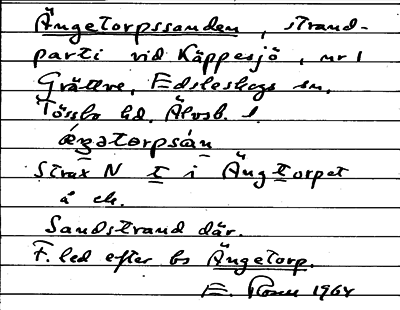 Ängetorpssanden, strand-
parti vid Käppesjö, nr 1
Grättve, Edsleskogs sn,
Tössbo hd, Älvsb. l.
Strax N t i Ängtorpet
å ek.
Sandstrand där.
F. led efter bs Ängetorp.
E. 1964